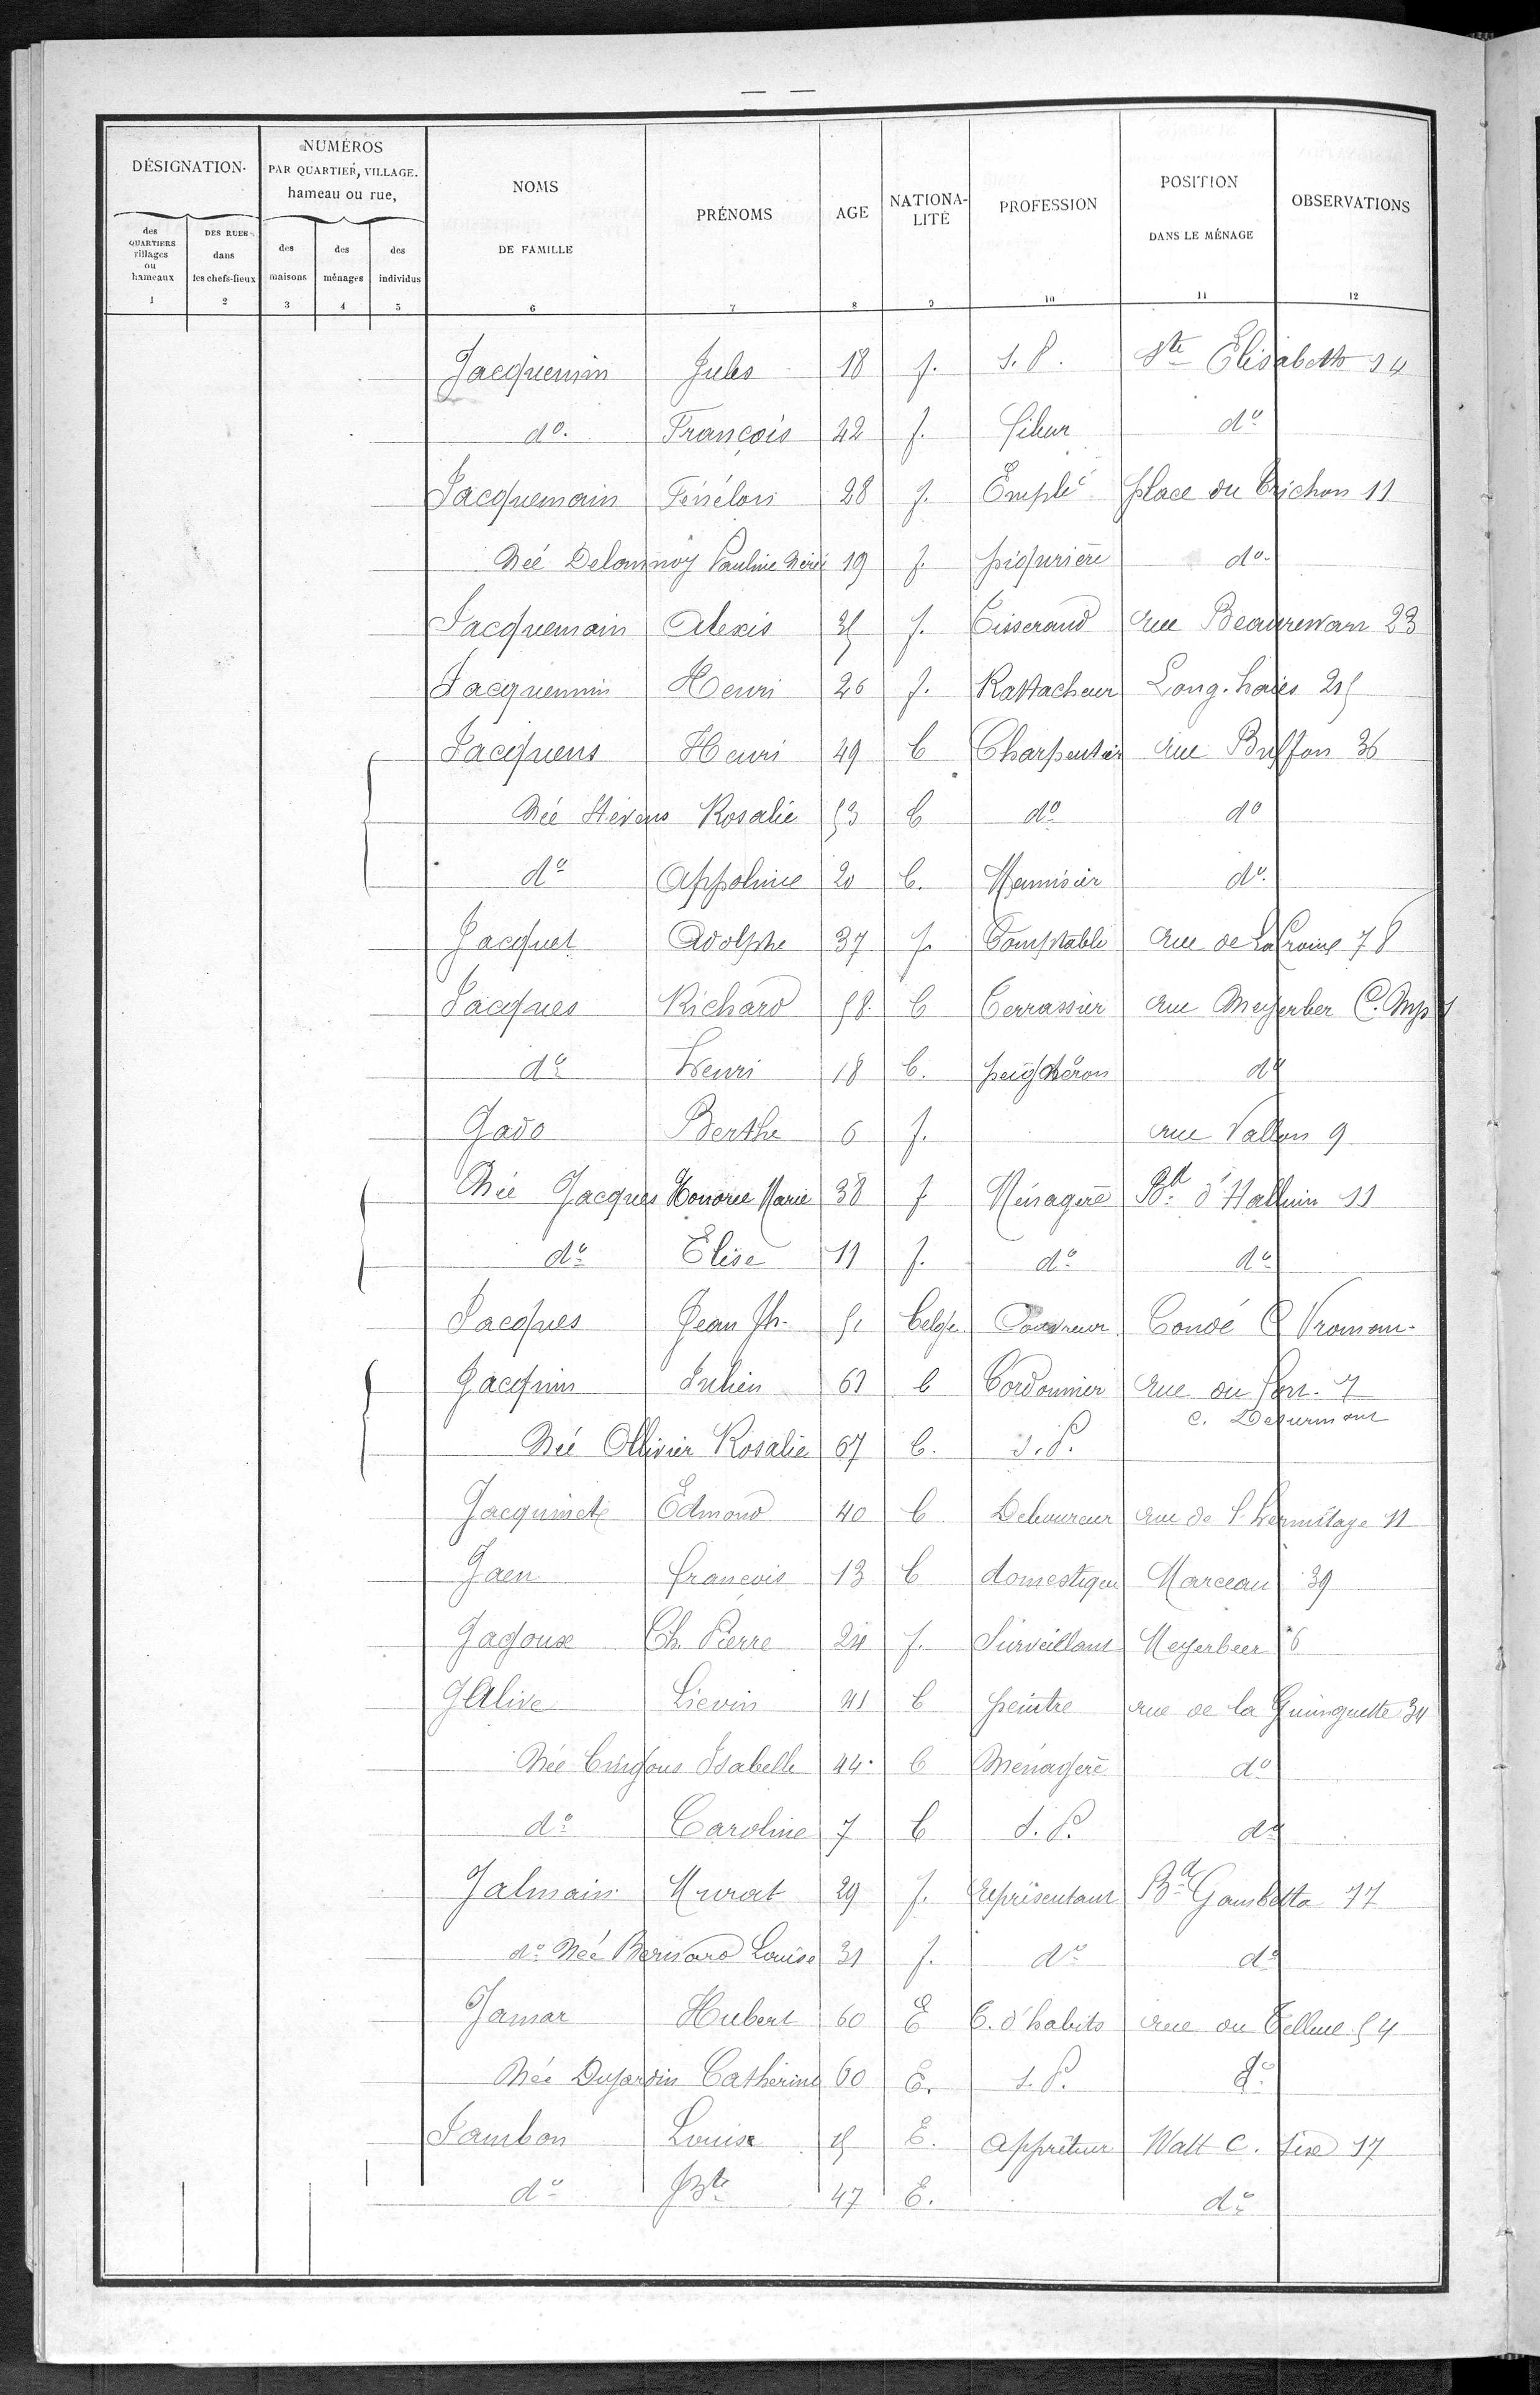 DÉSIGNATION.
NUMÉROS
PAR QUARTIER, VILLAGE.
hameau ou rue,
NOMS
DE FAMILLE
PRÉNOMS
AGE
NATIONA-
LITÉ
PROFESSION
POSITION
DANS LE MÉNAGE
OBSERVATIONS
des
QUARTIERS
villages
ou
hameaux
DES RUES
dans
les chefs-lieux
des
maisons
des
ménages
des
individus
1 2 3 4 5 6 7 8 9 10 11 12
Jacquemin Jules 18 f. S.P. Ste Elisabeth 14
do. François 42 f. fileur do
Jacquemain Fénélon 28 f. Emplé place du Trichon 11
Née Delannoy Pauline 19 f. piqurière do.
Jacquemain Alexis f. Tisserand rue Beaurewaer 23
Jacquemin Henri 26 f. Rattacheur Long. haies 215
Jacquens Henri 49 b Charpentier rue Buffon 36
Née Stevens Rosalie 53 b do do
do Appoline 20 b. Menuisier do.
Jacquet Adolphe 37 f. Comptable rue de 78
Jacques Richard 58 b Terrassier rue Meyerber
do Henri 18 b. do
Jado Berthe 6 f. rue Vallon 9
Née Jacques Honorée Marie 38 f Ménagère Bd d'Halluin 11
do Elise 11 f. do do
Jacques Jean Jh. 51 belge Couvreur Condé C Vroman.
Jacquin Julien 61 b Cordonnier rue du 7
C. Desurmont
Née Ollivier Rosalie 67 b. S.P.
Edmond 40 b Deboureur rue de l'hermitage 11
Jaen francois 13 b domestique Marceau 39
Jagoux Ch. Pierre 24 f. Surveillant Meyerbeer 6
JAlive Lievin 41 b peintre rue de la Guinguette 34
Née Isabelle 44 b Ménagère do
do Caroline 7 b S.P. do
Jalmain Murat 29 f. représentant Bd Gambetta 77
do Née Bernard Louise 31 f. do do
Jamar Hubert 60 E C. d'habits rue du 54
Née Dujardin Catherine 60 E. S.P. do
Jambon Louise 15 E. Apprêteur Watt C. Six 17
do JBte 47 E. do